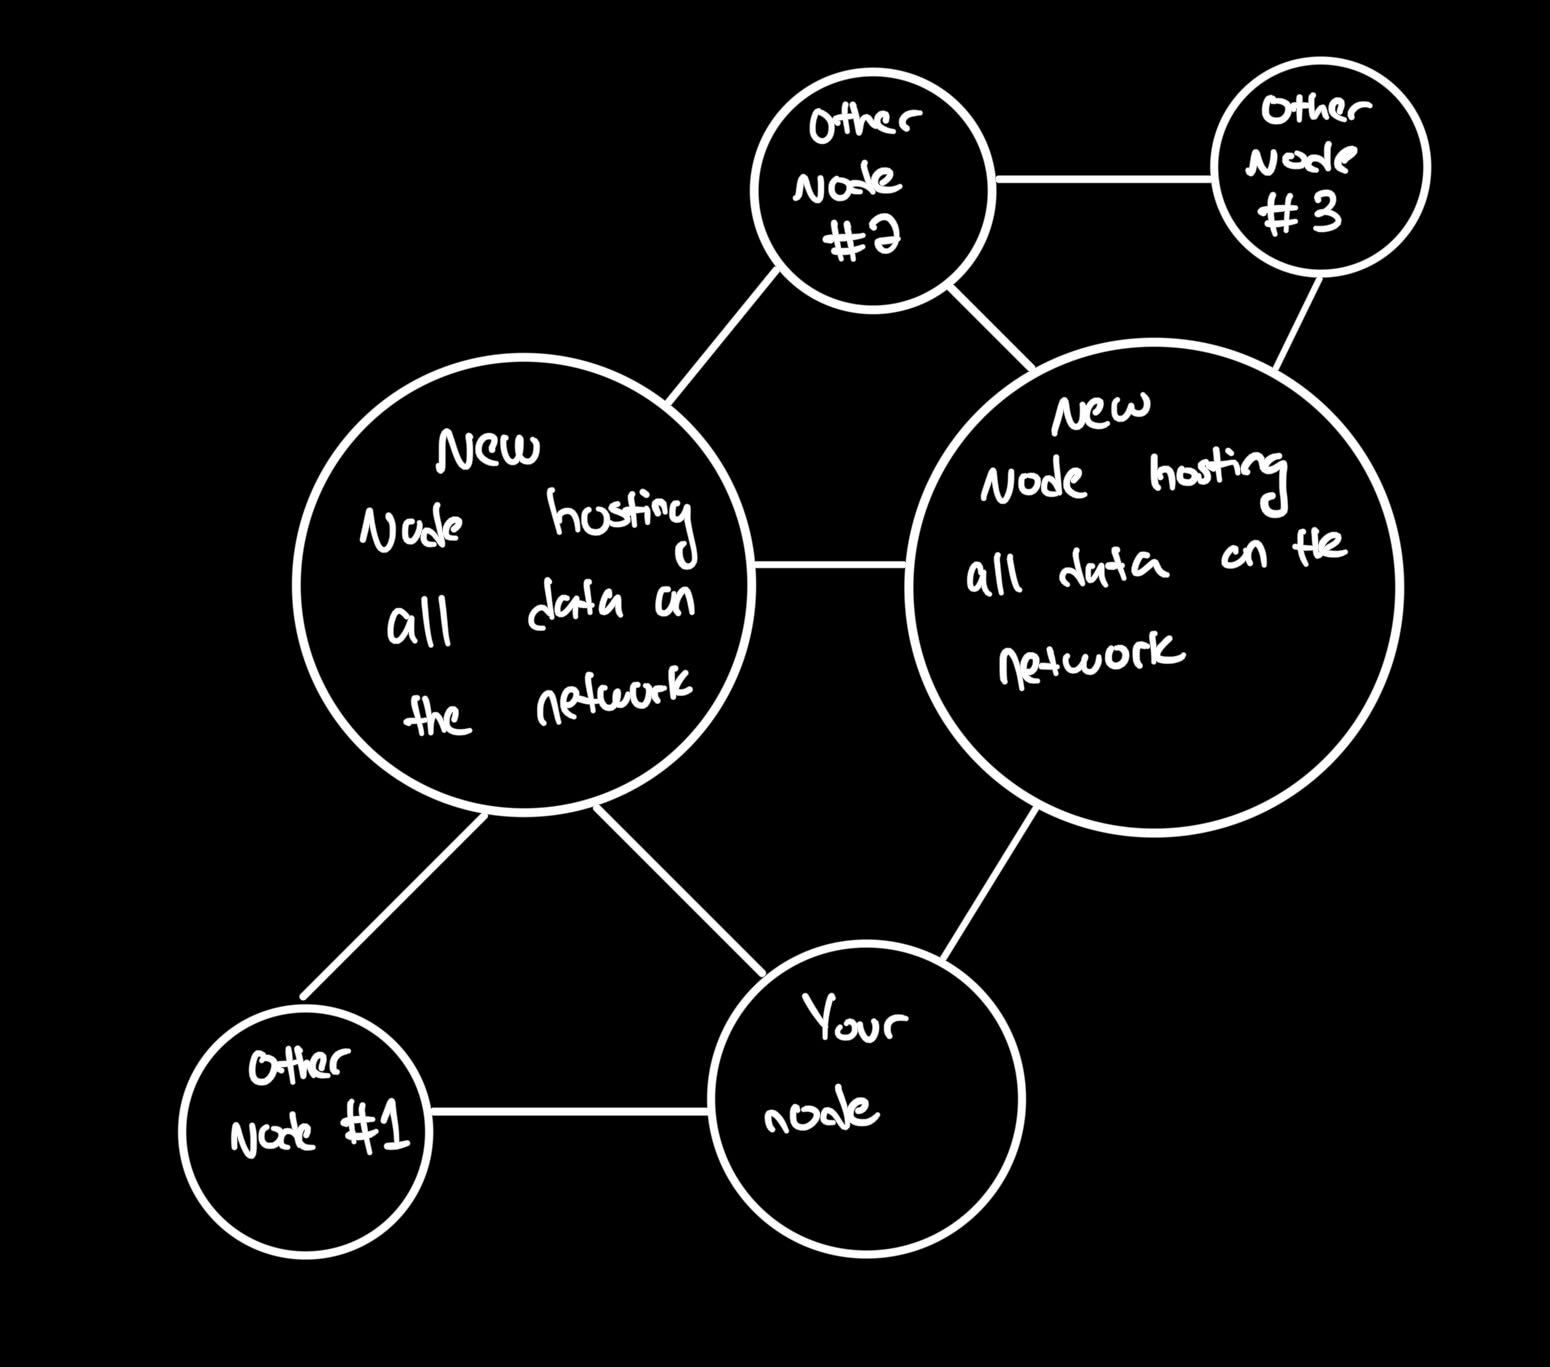 Other
Node
#2
Other
Node
#3
New
Node hosting
all data on
the network
New
Node hosting
all data on the
network
Other
Node #1
Your
node